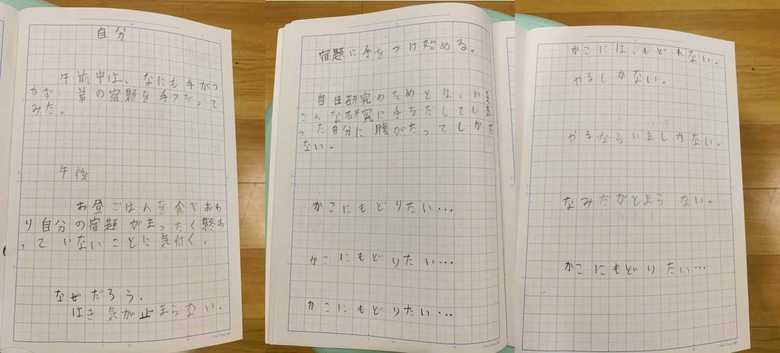 自分
午前中は、なにも手がつ
かな 弟の宿題を手つだって
みた。
午後
お昼ごはんを食べおわ
り自分の宿題がまったく終わ
っていないことに気付く。
なぜだろう。
はき気が止まらない。
宿題に手をつけ始める。
自由研究のためとはいえ
こんな研究に手をだしてしま
った自分に腹がたってしかた
ない。
かこにもどりたい…
かこにもどりたい…
かこにもどりたい…
かこには、もどれない。
やるしかない。
やるならいましかない。
なみだがとまらない。
かこにもどりたい…